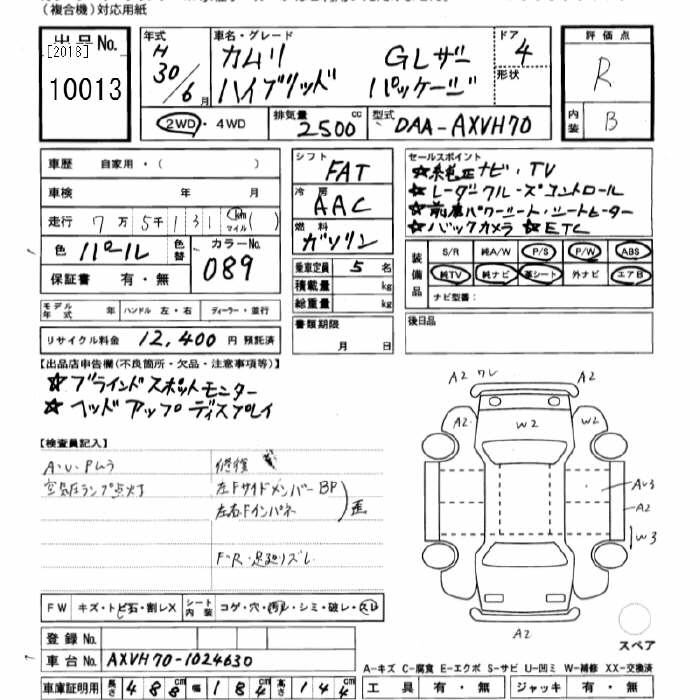 (複合機)対応用紙
出品No. [2018] 10013
年式 H30/6月
車名・グレード カムリ ハイブリッド Gレザー パッケージ
ドア 4 形状
評価点 R
内装 B
2WD・4WD 排気量 2500cc 型式 DAA-AXVH70
車歴 自家用・( )
車検 年 月
走行 7万5千131 km マイル ( )
色 パール 色替 カラーNo. 089
保証書 有・無
モデル年式 年 ハンドル 左・右 ディーラー・並行
リサイクル料金 12,400 円 預託済
シフト FAT
冷房 AAC
燃料 ガソリン
乗車定員 5名
積載量 kg
総重量 kg
書類期限 月 日
セールスポイント
☆純正ナビ・TV
☆レーダークルーズコントロール
☆前席パワーシート・シートヒーター
☆バックカメラ ☆ETC
装備品 S/R 純A/W P/S P/W ABS
純TV 純ナビ 革シート 外ナビ エアB
ナビ型番:
後日品
【出品店申告欄(不良箇所・欠品・注意事項等)】
☆ブラインドスポットモニター
☆ヘッドアップディスプレイ
【検査員記入】
A・U・Pムラ
空気圧ランプ点灯
修復
左Fサイドメンバー BP
左右Fインパネ
歪
F・R・足廻りズレ
FW キズ・トビ石・割レX シート内装 コゲ・穴・汚レ・シミ・破レ・スレ
登録No.
車台No. AXVH70-1024630
車庫証明用 長さ 488cm 幅 184cm 高さ 144
A2 ワレ A2
A2 W2 W2
AU3
A2
W3
A2
スペア
A-キズ C-腐食 E-エクボ S-サビ U-凹ミ W-補修 XX-交換済
工具 有・無 ジャッキ 有・無